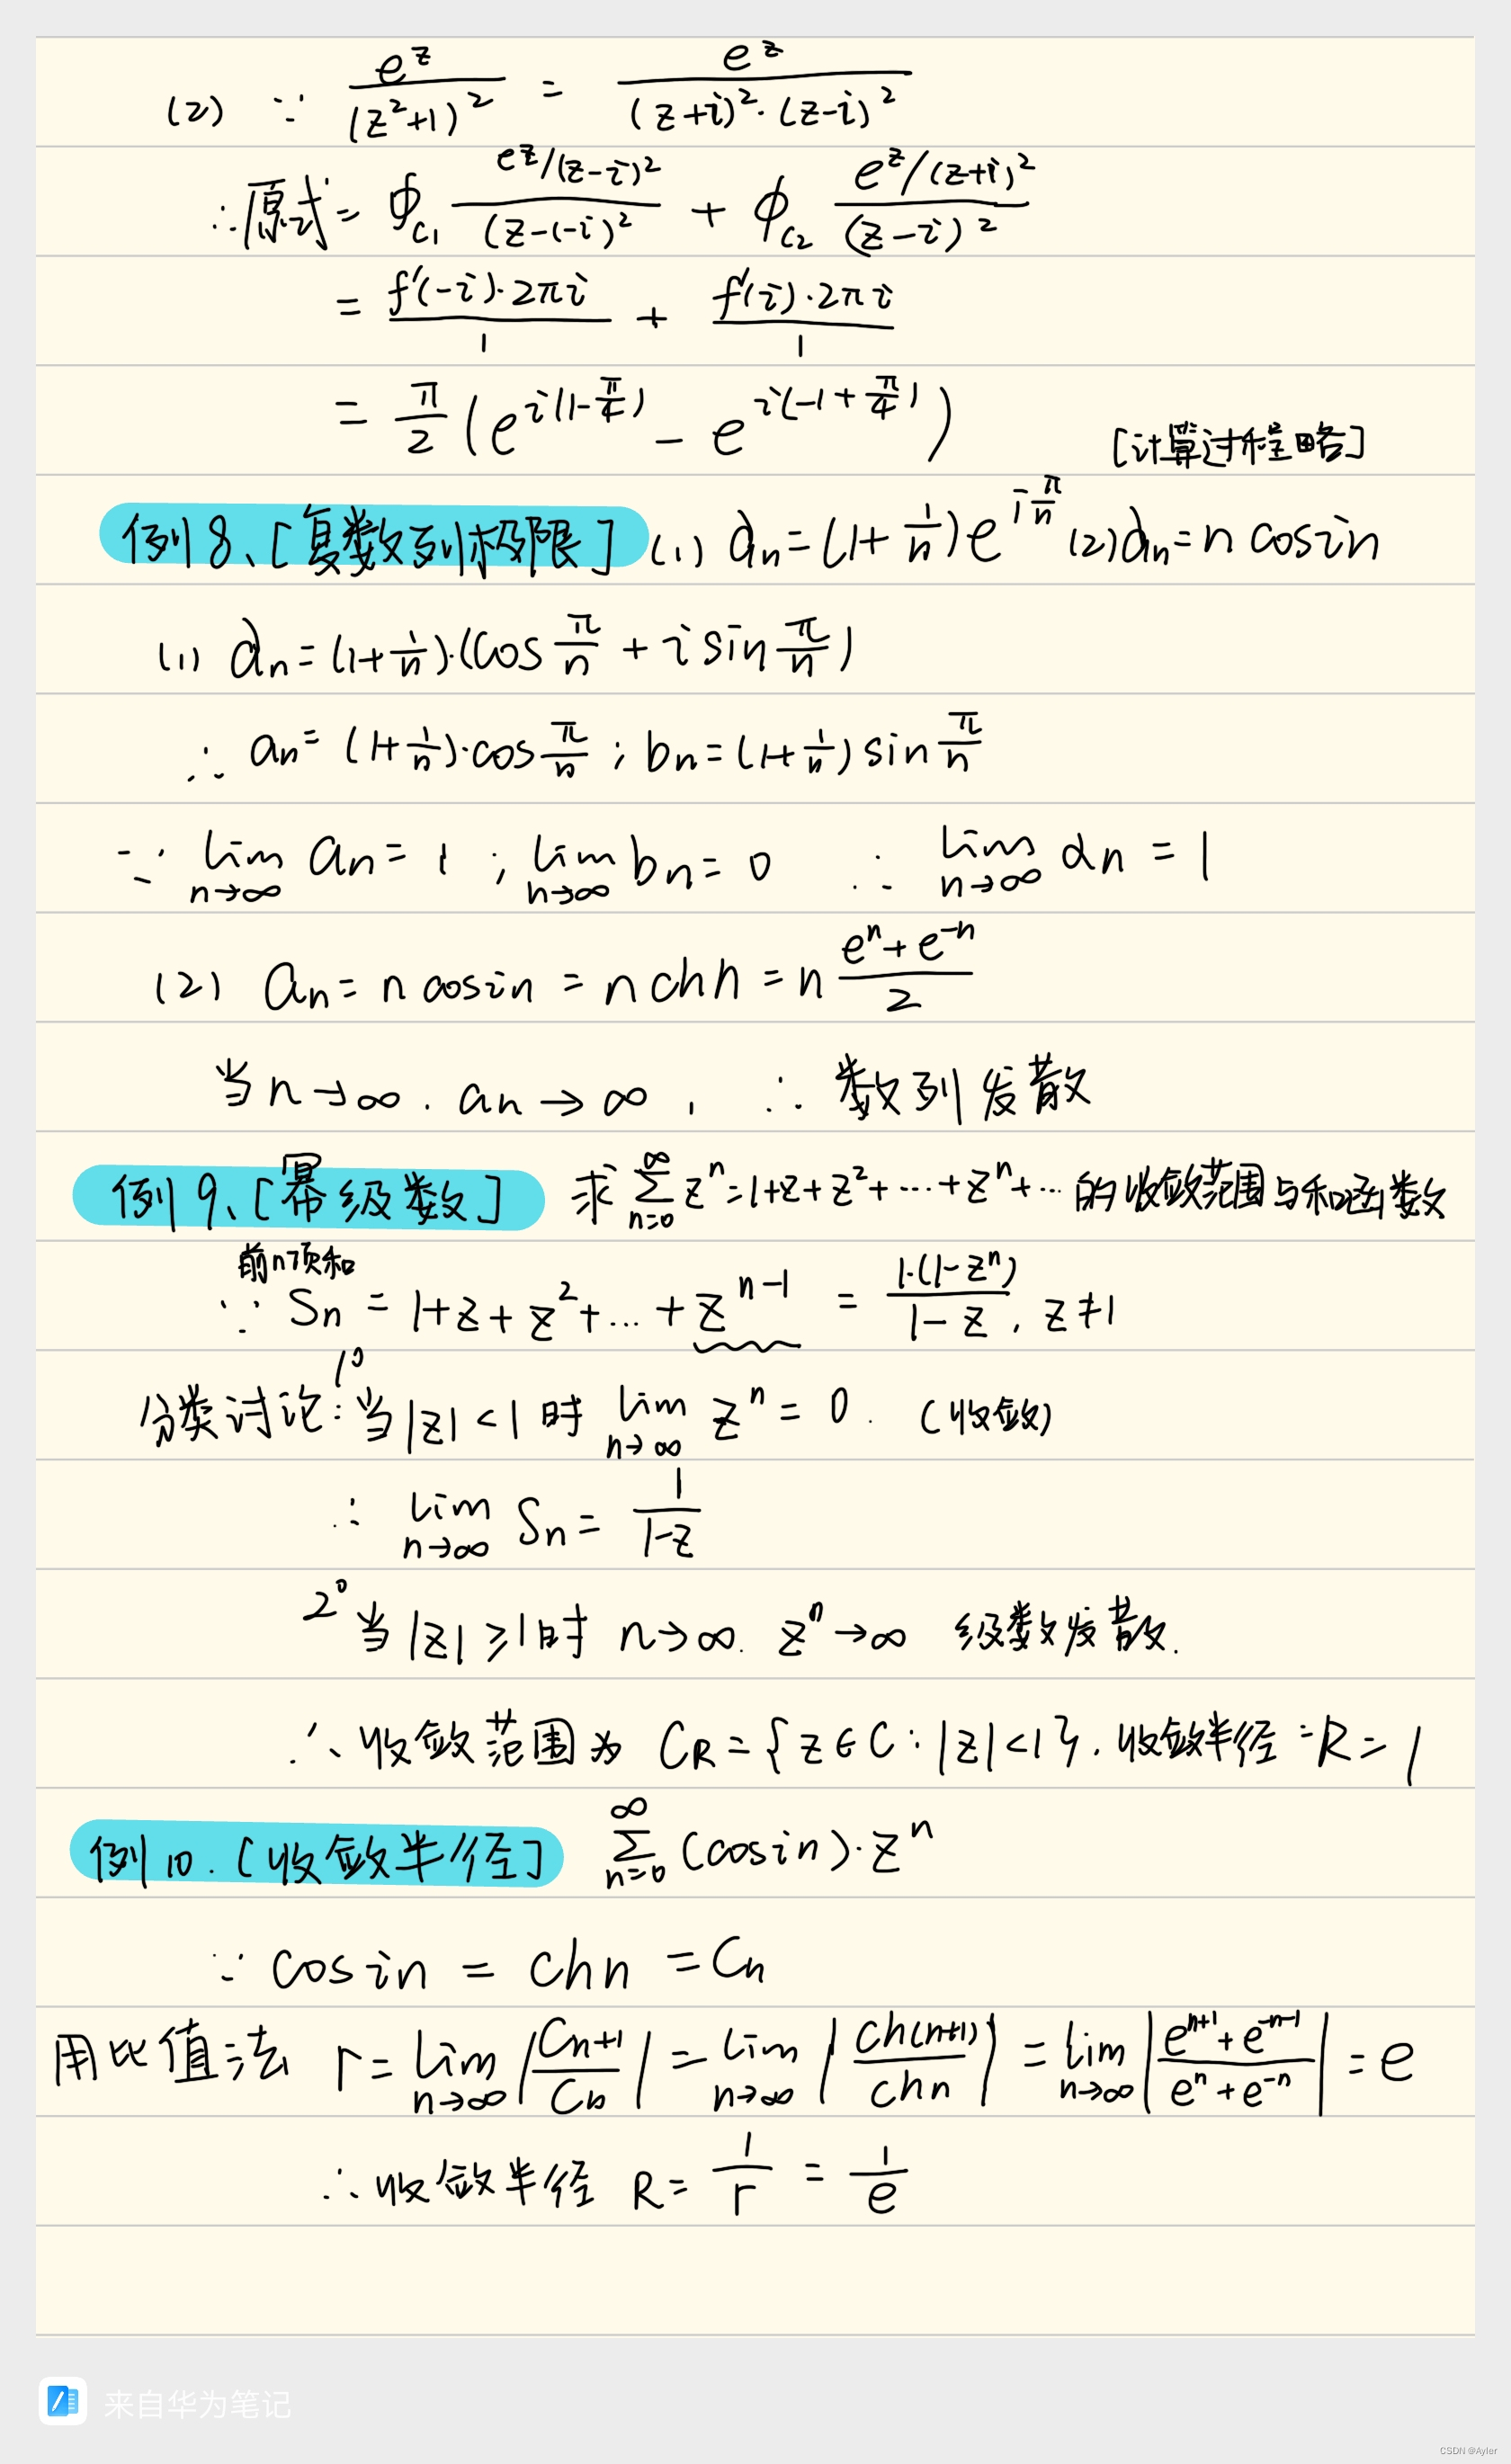 (2) ∵ e^z/(z²+1)² = e^z/((z+i)²·(z-i)²)
∴原式= ∮_{C₁} (e^z/(z-i)²)/(z-(-i)² + ∮_{C₂} (e^z/(z+i)²)/(z-i)²
= f'(-i)·2πi/1 + f'(i)·2πi/1
= π/2 (e^{i(1-π/4)} - e^{i(-1+π/4)})
[计算过程略]
例8、[复数列极限] (1) αn=(1+1/n)e^{iπ/n} (2)αn=n cosin
(1) αn=(1+1/n)·(cosπ/n + i sinπ/n)
∴ an=(1+1/n)·cosπ/n ; bn=(1+1/n)sinπ/n
∵ lim_{n→∞} an=1 ; lim_{n→∞} bn=0 ∴ lim_{n→∞} αn=1
(2) an=n cosin=n chn=n (eⁿ+e⁻ⁿ)/2
当n→∞, an→∞, ∴ 数列发散
例9、[幂级数] 求∑_{n=0}^{∞} zⁿ=1+z+z²+…+zⁿ+… 的收敛范围与和函数
前n项和
∵ Sn = 1+z+z²+…+z^{n-1} = 1·(1-zⁿ)/(1-z), z≠1
分类讨论: 1° 当|z|<1时 lim_{n→∞} zⁿ=0. (收敛)
∴ lim_{n→∞} Sn = 1/(1-z)
2° 当|z|≥1时 n→∞. zⁿ→∞ 级数发散.
∴ 收敛范围为 C_R={z∈C:|z|<1}, 收敛半径:R=1
例10.[收敛半径] ∑_{n=0}^{∞} (cosin)·zⁿ
∵ cosin = chn = Cn
用比值法 r=lim_{n→∞}|C_{n+1}/C_n|=lim_{n→∞}|ch(n+1)/chn|=lim_{n→∞}|(e^{n+1}+e^{-n-1})/(eⁿ+e⁻ⁿ)|=e
∴收敛半径 R=1/r=1/e
来自华为笔记
CSDN @Ayler